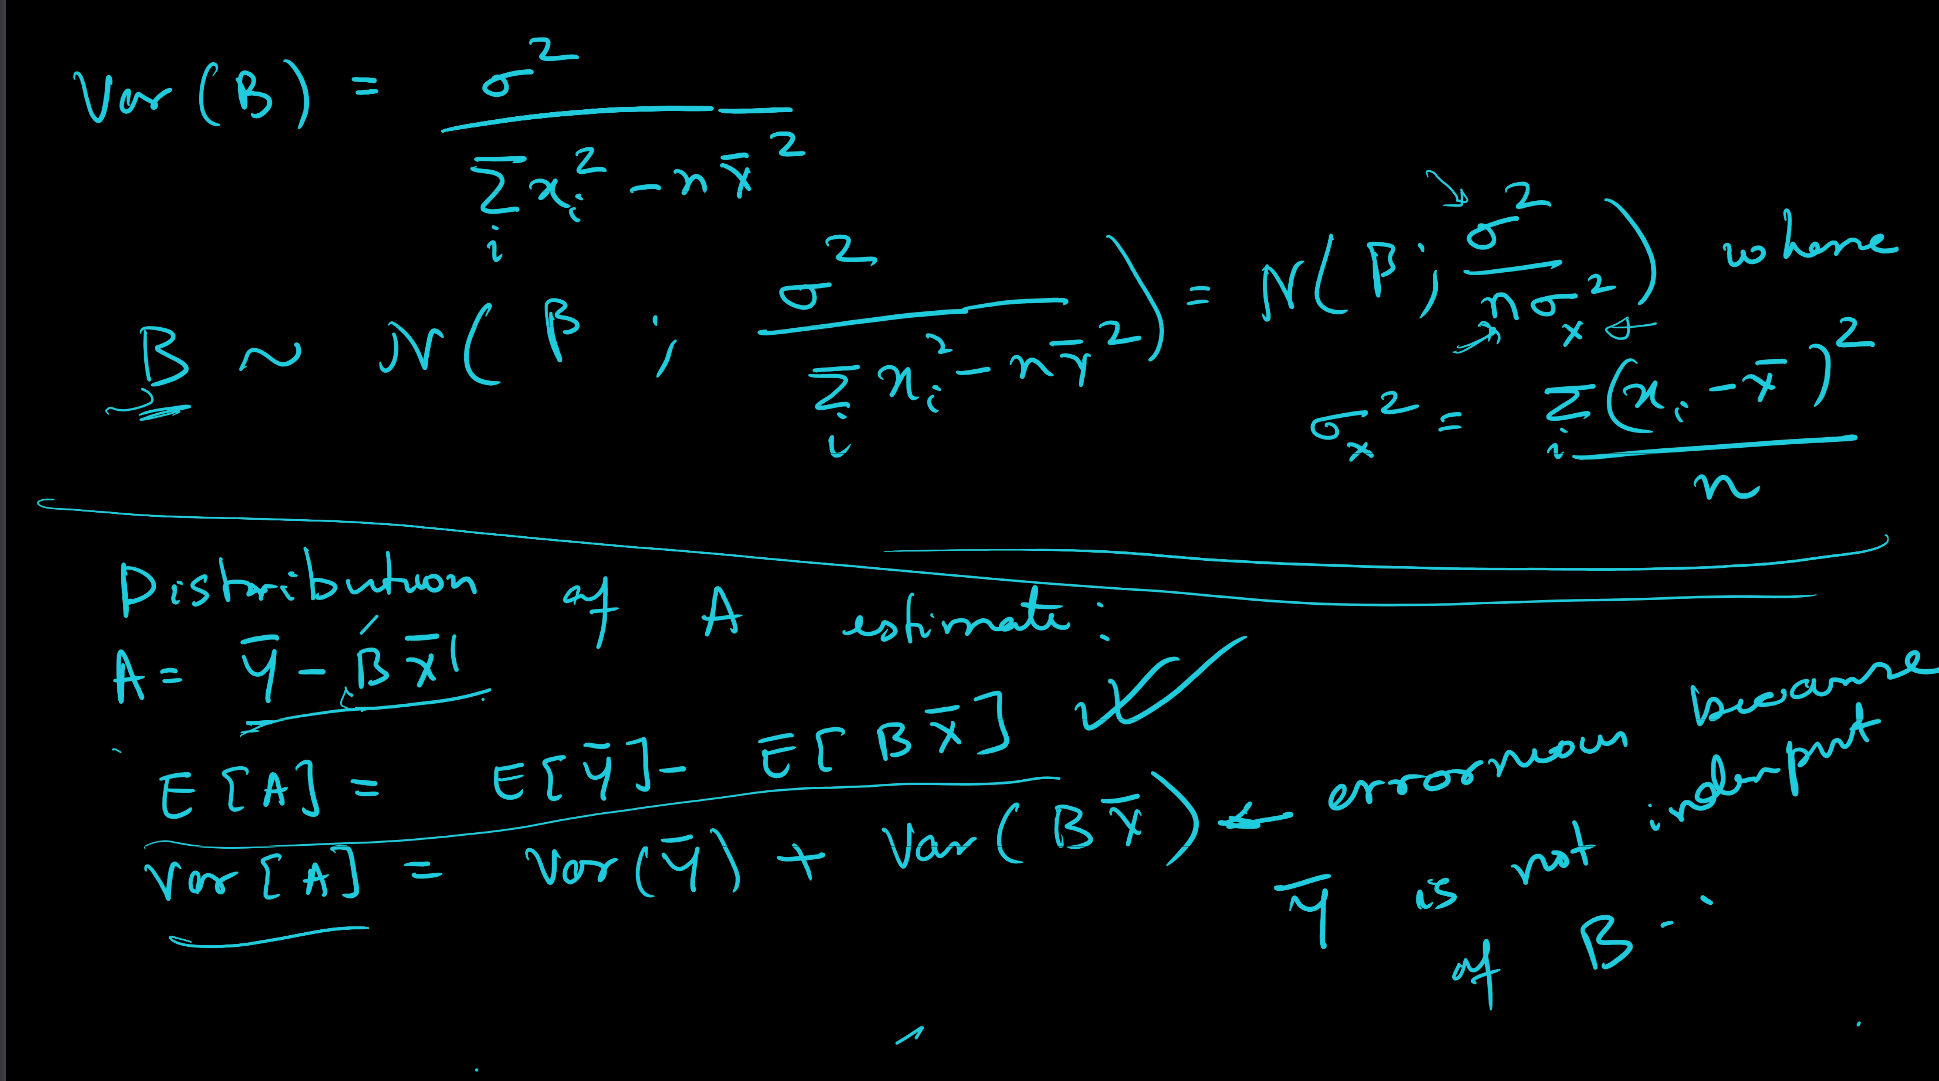 Var (B) = σ² / Σᵢ xᵢ² - n x̄²
B ~ N( β ; σ² / Σᵢ xᵢ² - n x̄² ) = N( β ; σ² / n σₓ² ) where
σₓ² = Σᵢ (xᵢ - x̄)² / n
Distribution of A estimate:
A = Ȳ - B x̄
E [A] = E[Ȳ] - E[ B x̄ ]
Var [A] = Var (Ȳ) + Var ( B x̄ ) ← errorneous because
Ȳ is not indenpnt
of B..